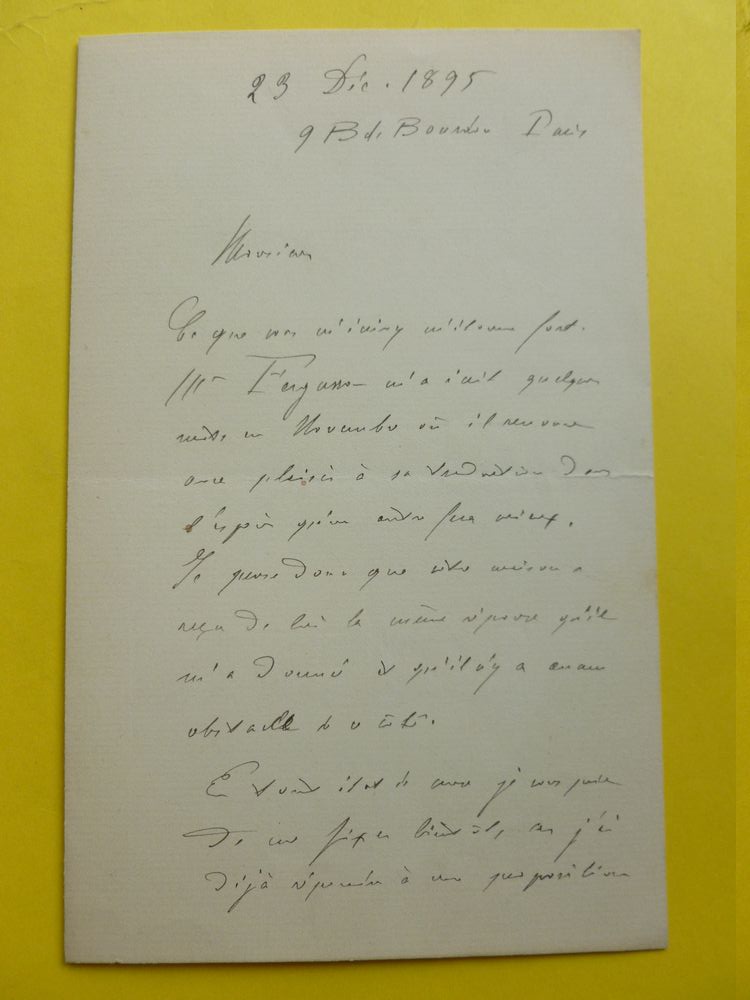 23 Déc. 1895
9 Bd. Bourdon Paris
Monsieur
Ce que vous m'écrivez m'étonne fort.
Mr Fergusson m'a écrit quelques
mots en Novembre où il renonce
avec plaisir à sa traduction dans
l'espoir qu'une autre fera mieux.
Je pense donc que votre maison a
reçu de lui la même réponse qu'il
m'a donnée et qu'il n'y a aucun
obstacle de ce côté.
En tout état de cause je vous prie
de me fixer bientôt, car j'ai
déjà répondu à une proposition